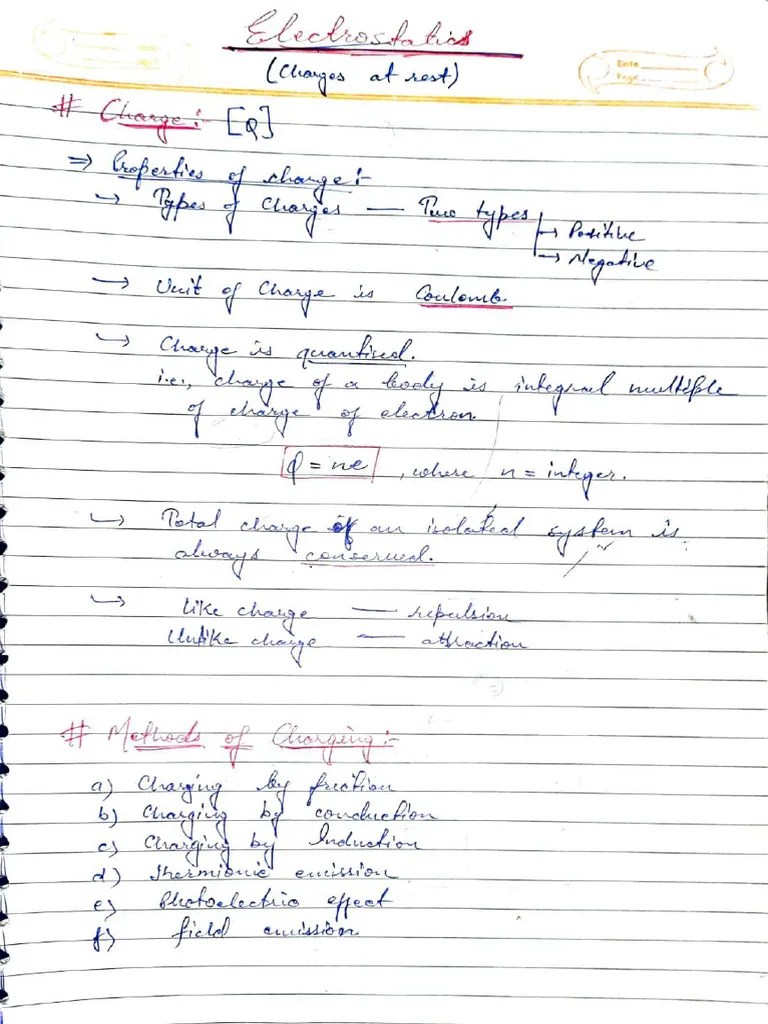 Electrostatics
(Charges at rest)
Date
Page
# Charge:- [Q]
⇒ Properties of charge:-
→ Types of Charges — Two types
→ Positive
→ Negative
→ Unit of Charge is Coulomb
→ Charge is quantised.
i.e., charge of a body is integral multiple
of charge of electron
Q = ne , where n = integer.
→ Total charge of an isolated system is
always conserved.
→ Like charge — repulsion
Unlike charge — attraction
# Methods of Charging:-
a) Charging by friction
b) Charging by conduction
c) Charging by Induction
d) Thermionic emission
e) Photoelectric effect
f) field emission